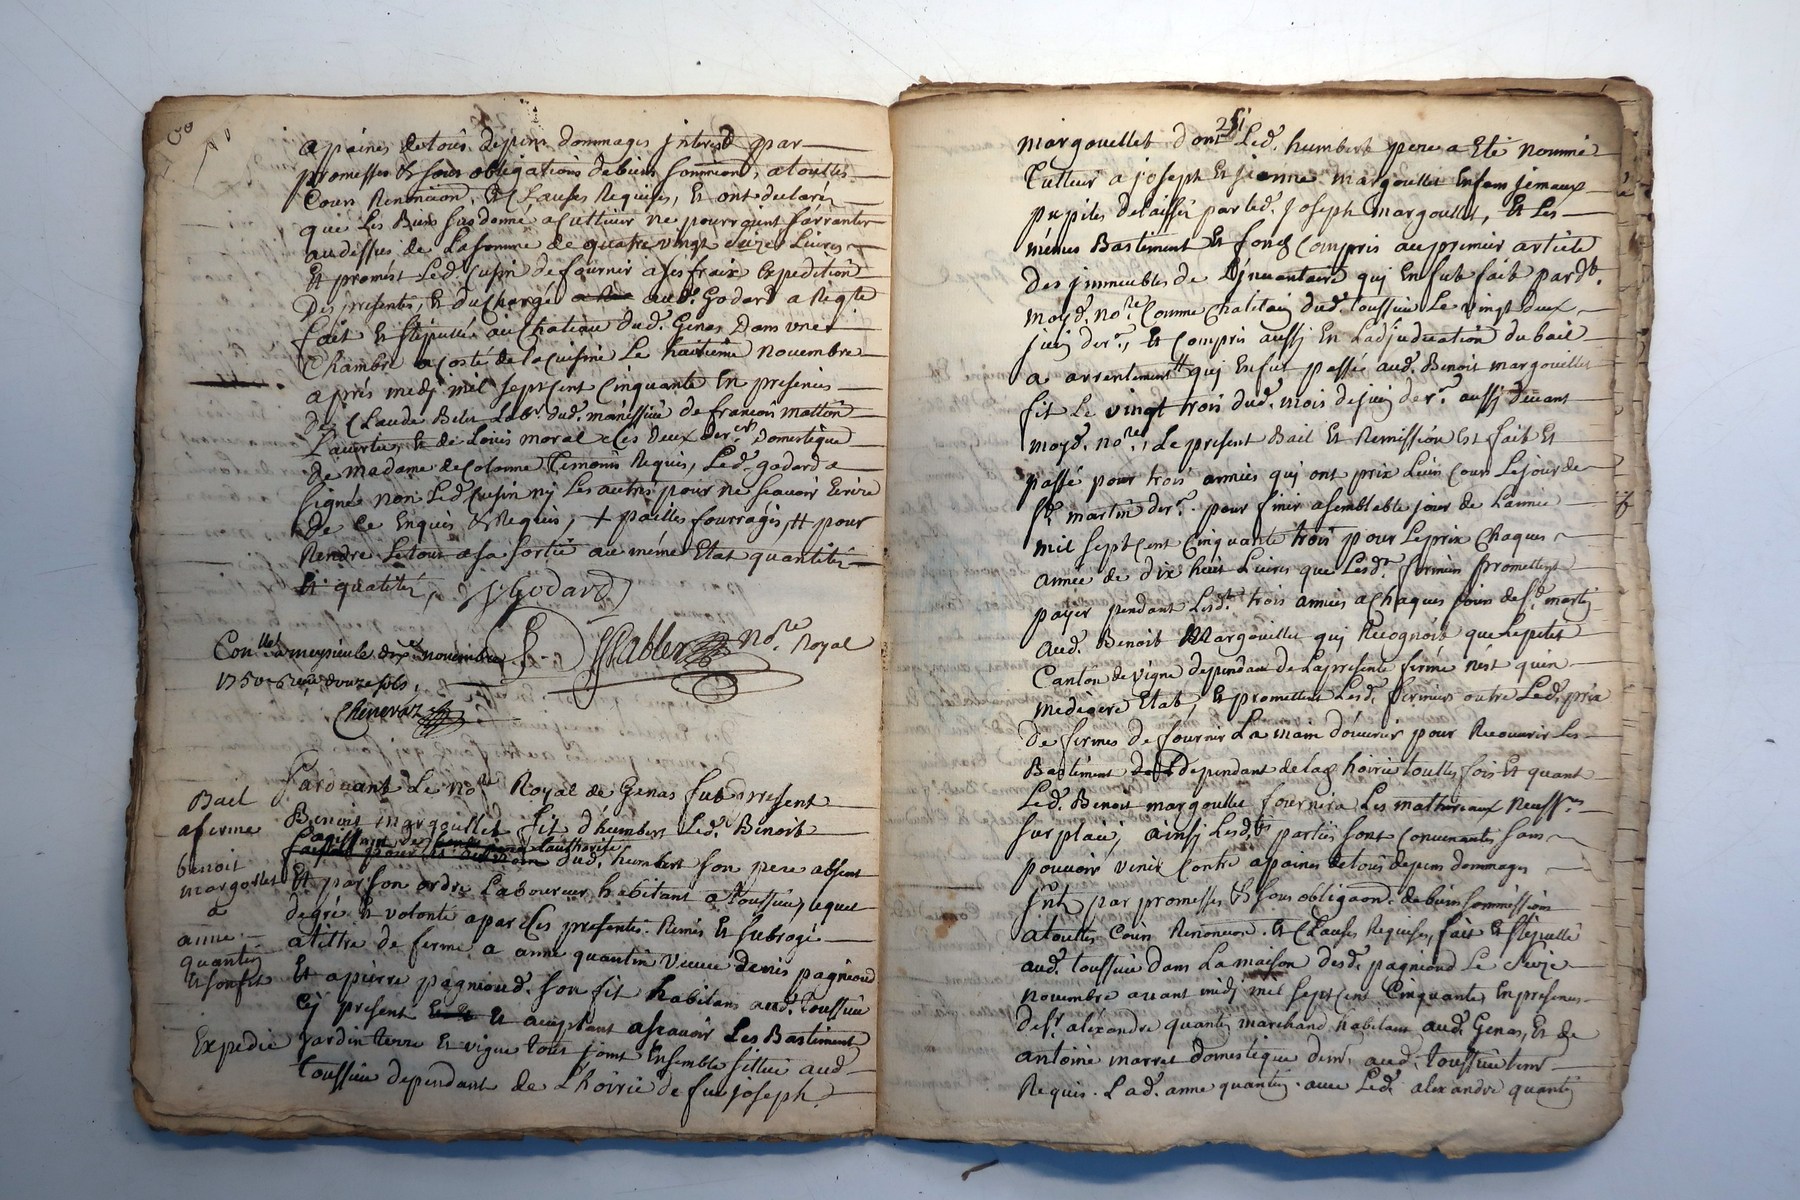 a paines de tous depens dommages jnterest par
promesses et sous obligations de biens sommission, a touttes
Cours Renoncion, et Clauses Requises, et ont declaré
que Les Biens sus donné a Cultiver ne pourroient sarranter
audessus de La somme de quatre vingt Livres
et promest Led. Cusin de fournir a ses fraix Expedition
Des presentes, et du Chargé aud. Godard a Regte
fait et stipullé au Chateau dud. Genas Dans une
Chambre a costé de la Cuisine Le huitieme novembre
aprés midj mil sept Cent Cinquante En presences
De Claude Labr. dud. de francois matton
et de Louis moral Les deux der.ers Domestique
De madame de Colonne Temoins Requis, Led. godard a
signé non Led. Cusin nj Les autres pour ne scavoir Ecrire
De Ce Enquis et Requis, + pailles fourrages, # pour
Rendre Le tout a sa sortie au méme Etat quantité
et qualité, Godard
No.re Royal
Con.llé a meyzieule dix novembre
1750 Reçu douze sols,
Chenevaz
Pardevant Le No.re Royal de Genas fut present
Benoit margoullet fit d'humbert Led. Benoit
agissant de l'authorité
dud. humbert son pere absent
Et par son ordre Laboureur habitant a Toussieu, Lequel
de gré et volonté a par Ces presentes Remis et subrogé
a tiltre de ferme a anne quantin veuve denis pagnioud
Et a pierre pagnioud son fit habitans aud. Toussieu
Cy present et acceptant ascavoir Les Bastiment
Jardin terre et vigne tous joint Ensemble sittue aud.
Toussieu dependant de L'hoirie de feu joseph
Bail
a ferme
benoit
margoullet
a
anne
quantin
et son fit
Expedie
251
margouellet dont Led. humbert pere a Eté nommé
Tutteur a joseph Et Margoullet Enfans jemeaux
pupiles delaissés par led. Joseph Margoullet, Et Les
mémes Bastiment Et fond Compris au premier article
Des jmmeubles de L'jnventaire quj En fut fait pard.t
moyd. no.re Comme Chatelain dud. Toussieu Le vingt deux
juin der.r, Et Compris aussj En Ladjudication du bail
a arrentement quj En fut passé aud. Benoit margouellet
fit Le vingt trois dud. mois de juin der.r aussj devant
moyd. no.re, Le present Bail Et Remission Est fait Et
passé pour trois années quj ont prix Leur Cours Le jour de
St. martin der.r pour finir a semblable jour de Lannée
mil sept Cent Cinquante trois pour Le prix Chaques
année de dix huit Livres que Lesd. fermiers promettent
payer pendant Lesd. trois années a Chaques jours de St. martin
aud. Benoit Margouellet quj Recognoit que Le petit
Canton de vigne dependant de La presente ferme n'est qu'en
mediocre Etat, Et promettent Lesd. fermiers outre Led. prix
de fermes de fournir La main d'oeuvre pour Recouvrir Les
Bastiment dependant de lad. hoirie touttes fois Et quant
Led. Benoit margoullet fournira Les mattereaux neuss.res
sur place, ainsj Lesd. parties sont Convenantes sans
pouvoir venir Contre a paines de tous depens dommages
jnt. par promesses et sous obligaon. de biens sommission
a touttes Cours Renoncion. et Clauses Requises, fait et stipullé
aud. toussieu dans La maison desd. pagnioud Le seize
novembre avant midj mil sept Cent Cinquante En presences
de sr. alexandre quantin marchand habitant aud. Genas, Et de
antoine marret domestique dem.t aud. toussieu tem.s
Requis. Lad. anne quantin avec Led. alexandre quantin